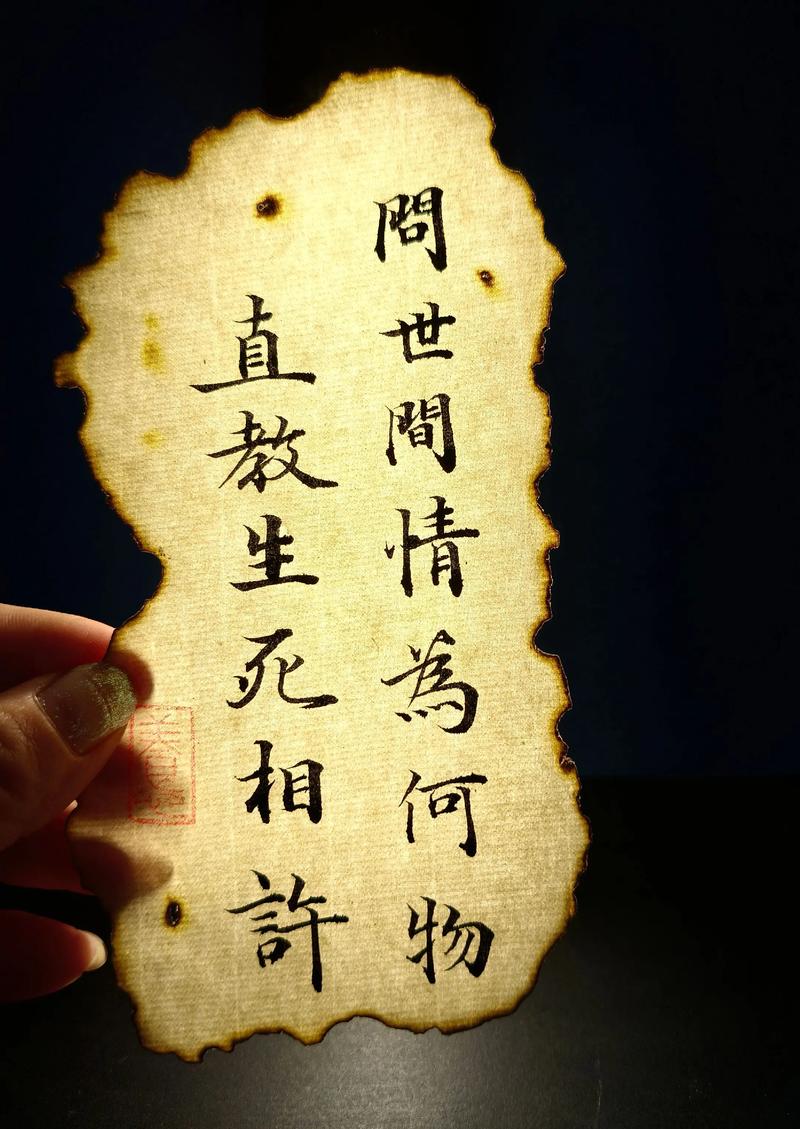 問世間情為何物
直教生死相許